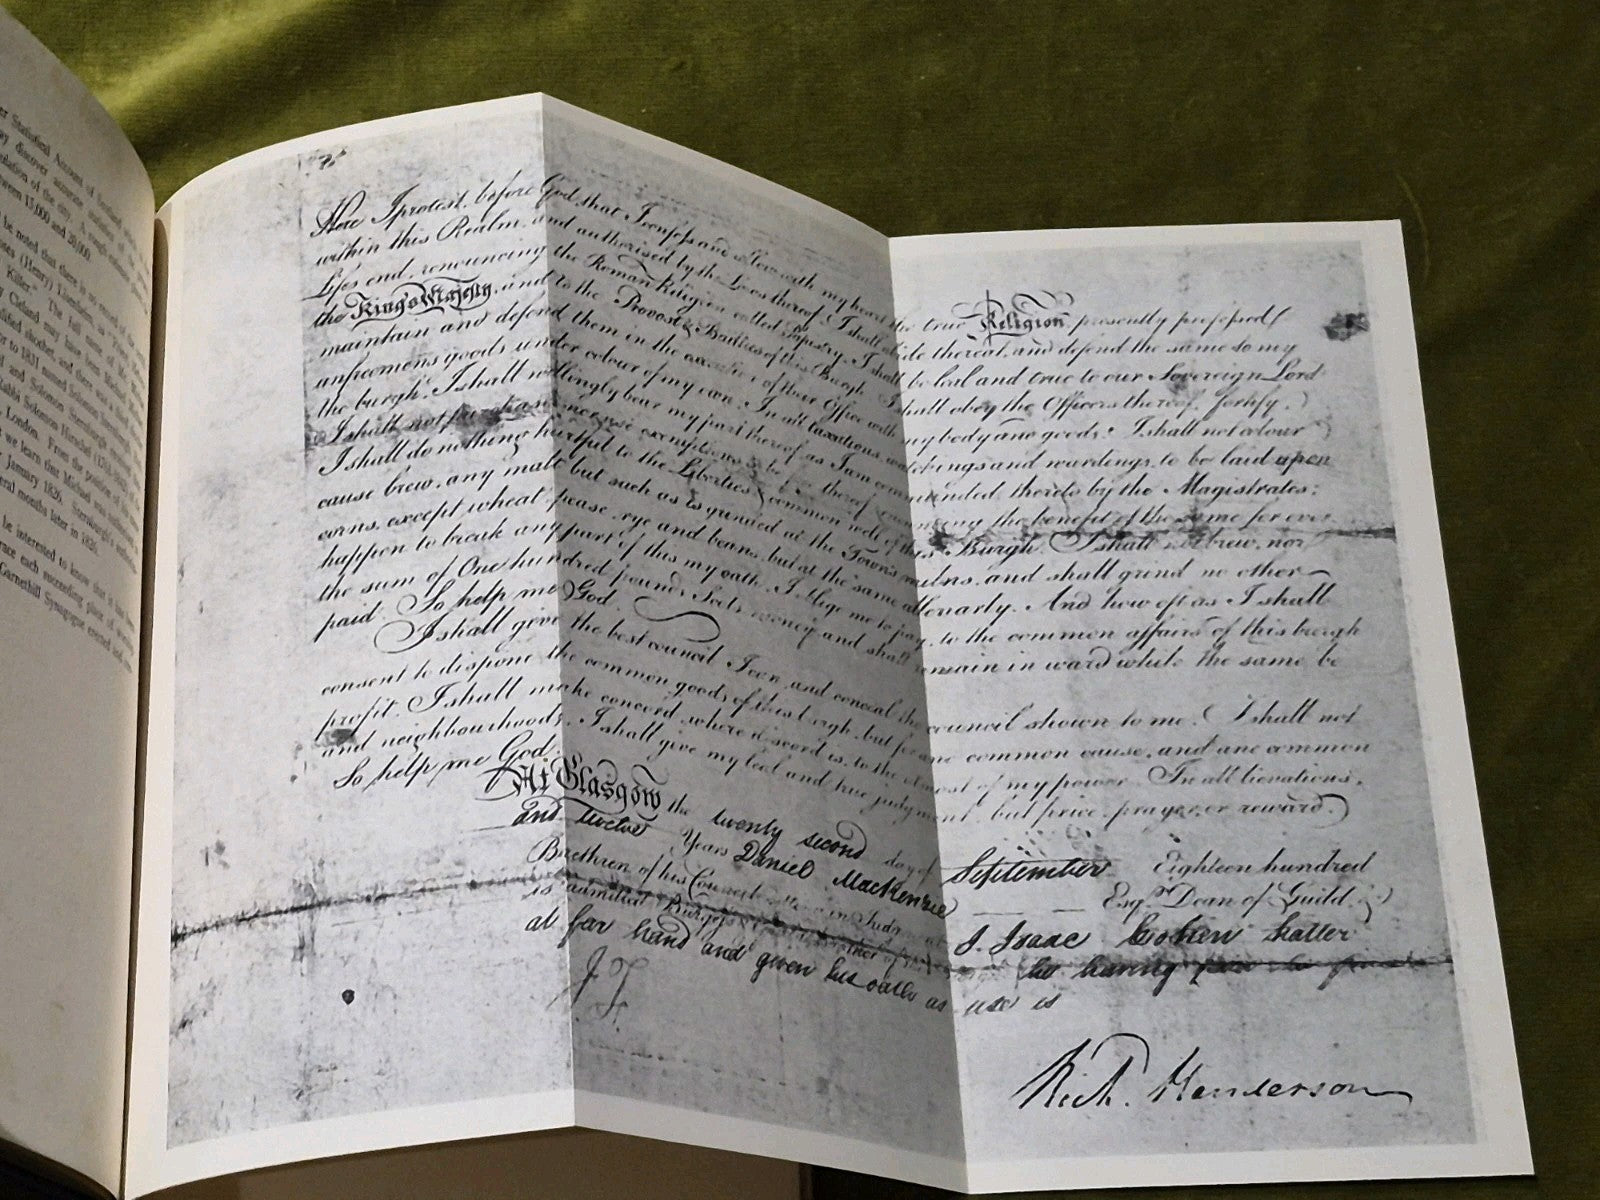 er Statistical Account of Scotland
ay discover accurate
ulation of the city.
ween 15,000 and 20,000
be noted that there is no record of the
oses (Henry) Lisenheim, as "Priest
Killer." The full name of the
y Cleland may have been Michael
alified shochet, and there was a
r to 1831 named Solomon
ll and Solomon Sternburgh,
Rabbi Solomon Hirschel (1762-1842)
London. From the position of
t we learn that Michael was
January 1826. Sternburgh's
eral months later in 1826.
be interested to know that it has
race each succeeding place of
Garnethill Synagogue erected
Here I protest, before God that I confess and allow with my heart the true Religion, presently professed
within this Realm, and authorised by the Laws thereof: I shall abide thereat, and defend the same to my
Lifes end, renouncing the Roman Religion called Papistry. I shall be leal and true to our Sovereign Lord
the King's Majesty, and to the Provost & Bailies of this Burgh. I shall obey the Officers thereof, fortify,
maintain and defend them in the execution of their Office with my body and goods: I shall not colour
unfreemens goods under colour of my own: In all taxations, watchings and wardings, to be laid upon
the burgh, I shall willingly bear my part thereof, as I am commanded thereto by the Magistrates:
I shall not purchase nor use exemptions to be free thereof, renouncing the benefit of the same for ever
I shall do nothing hurtful to the Liberties & common well of this Burgh. I shall not brew, nor
cause brew, any malt but such as is grinded at the Town's milns, and shall grind no other
corns, except wheat, pease, rye and beans, but at the same allenarly. And how oft as I shall
happen to break any part of this my oath, I oblige me to pay, to the common affairs of this burgh
the sum of One hundred pounds Scots money and shall remain in ward while the same be
paid. So help me God.
I shall give the best council I can, and conceal the council shown to me. I shall not
consent to dispone the common goods of this burgh, but for ane common cause, and ane common
profit. I shall make concord where discord is, to the utmost of my power. In all lienations,
and neighbourhoods, I shall give my leal and true judgment, but price, prayer, or reward.
So help me God.
At Glasgow the twenty second day of September Eighteen hundred
and Twelve Years Daniel MacKenzie Esqr. Dean of Guild.
Brethren of his Council sitting in Judgment I. Isaac Cohen Hatter
is admitted Burgess he having paid his
at far hand and given his oath as use is
J T
Richd. Henderson